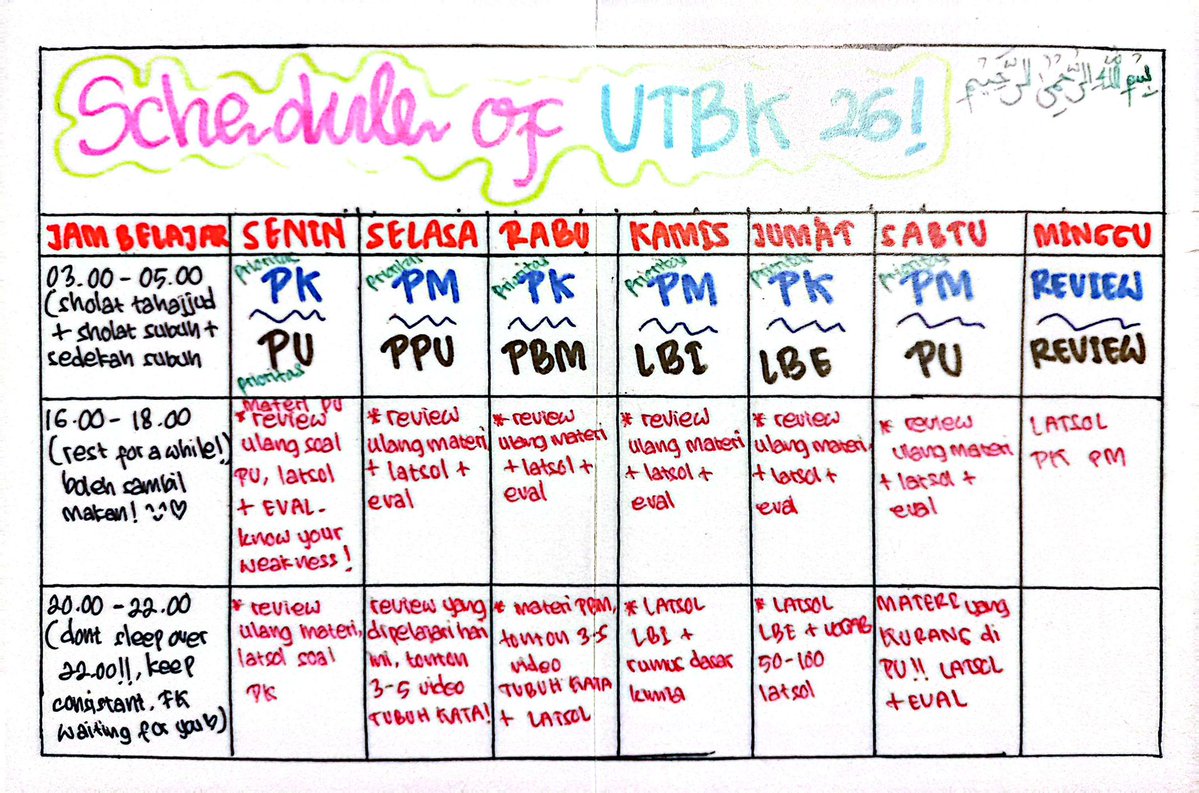 Scheduler of UTBK 26!
بِسْمِ اللَّهِ الرَّحْمَنِ الرَّحِيمِ
JAM BELAJAR SENIN SELASA RABU KAMIS JUMAT SABTU MINGGU
03.00 - 05.00
(sholat tahajjud
+ sholat subuh +
sedekah subuh
prioritas
PK
PU
prioritas
materi PU
prioritas
PM
PPU
prioritas
PK
PBM
prioritas
PM
LBI
prioritas
PK
LBE
prioritas
PM
PU
REVIEW
REVIEW
16.00 - 18.00
(rest for a while!!)
boleh sambil
makan!
* review
ulang soal
PU, latsol
+ EVAL-
know your
weakness!
* review
ulang materi
+ latsol +
eval
* review
ulang materi
+ latsol +
eval
* review
ulang materi
+ latsol +
eval
* review
ulang materi,
+ latsol +
eval
* review
ulang materi
+ latsol +
eval
LATSOL
PK PM
20.00 - 22.00
(dont sleep over
22.00!!, keep
consistant, FK
waiting for you♡)
* review
ulang materi,
latsol soal
PK
review yang
dipelajari hari
ini, tonton
3-5 video
TUBUH KATA!
* materi PBM,
tonton 3-5
video
TUBUH KATA
+ LATSOL
* LATSOL
LBI +
rumus dasar
* LATSOL
LBE + VOCAB
50-100
latsol
MATERI yang
KURANG di
PU!! LATSOL
+ EVAL